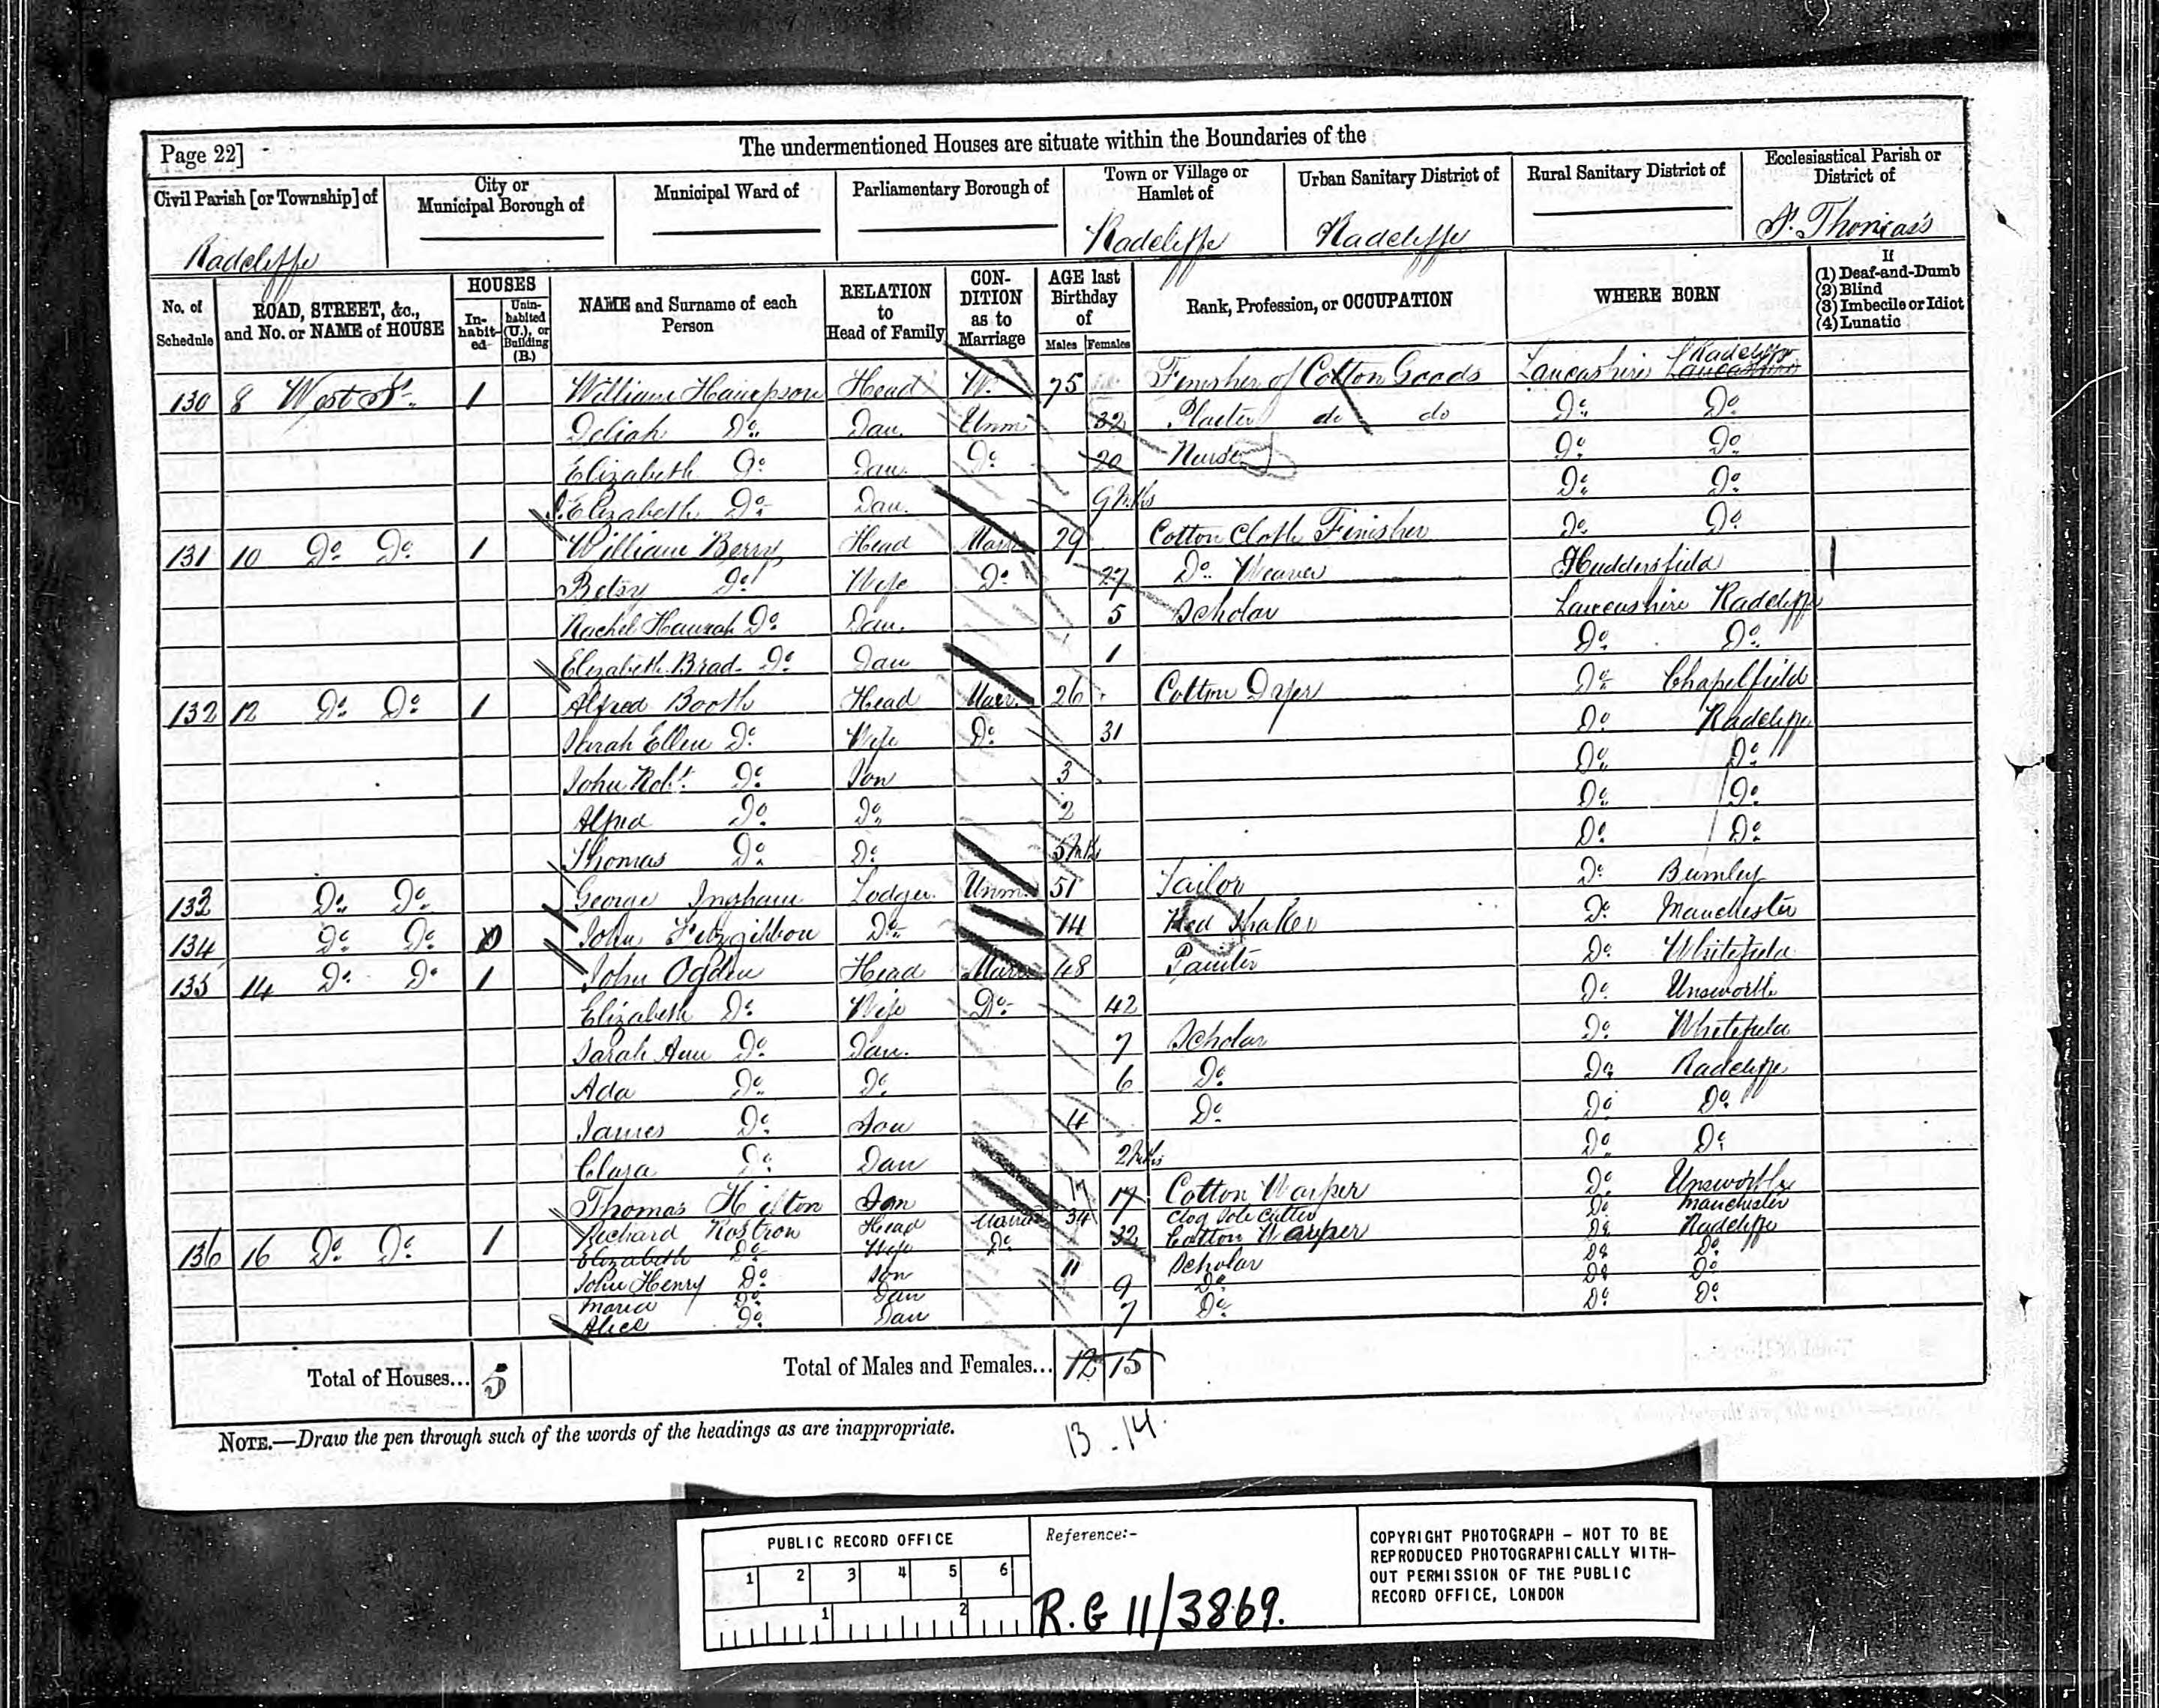 Page 22]
The undermentioned Houses are situate within the Boundaries of the
Civil Parish [or Township] of
City or Municipal Borough of
Municipal Ward of
Parliamentary Borough of
Town or Village or Hamlet of
Urban Sanitary District of
Rural Sanitary District of
Ecclesiastical Parish or District of
Radcliffe Radcliffe Radcliffe St. Thomas's
No. of Schedule
ROAD, STREET, &c., and No. or NAME of HOUSE
HOUSES
In-habit-ed
Unin-habited (U.), or Building (B.)
NAME and Surname of each Person
RELATION to Head of Family
CON-DITION as to Marriage
AGE last Birthday of
Males Females
Rank, Profession, or OCCUPATION
WHERE BORN
If
(1) Deaf-and-Dumb
(2) Blind
(3) Imbecile or Idiot
(4) Lunatic
130 8 West St. 1 William Hampson Head W. 75 Finisher of Cotton Goods Lancashire Radcliffe Lancashire
Deliah Do. Dau. Unm 32 Plaiter do do Do. Do.
Elizabeth Do. Dau. Do. 20 Nurse Do. Do.
Elizabeth Do. Dau. 9 Mths Do. Do.
131 10 Do. Do. 1 William Berry Head Marr. 29 Cotton Cloth Finisher Do. Do.
Betsy Do. Wife Do. 27 Do. Weaver Huddersfield
Rachel Hannah Do. Dau. 5 Scholar Lancashire Radcliffe
Elizabeth Brad. Do. Dau 1 Do. Do.
132 12 Do. Do. 1 Alfred Booth Head Marr. 26 Cotton Dyer Do. Chapelfield
Sarah Ellen Do. Wife Do. 31 Do. Radcliffe
John Robt. Do. Son 3 Do. Do.
Alfred Do. Do. 2 Do. Do.
Thomas Do. Do. 5 Mths Do. Do.
132 Do. Do. George Ingham Lodger Unm. 51 Tailor Do. Burnley
134 Do. Do. John Fitzgibbon Do. 14 Do. Manchester
135 14 Do. Do. 1 John Ogden Head Marr. 48 Painter Do. Whitefield
Elizabeth Do. Wife Do. 42 Do. Unsworth
Sarah Ann Do. Dau. 7 Scholar Do. Whitefield
Ada Do. Do. 6 Do. Do. Radcliffe
James Do. Son 4 Do. Do. Do.
Clara Do. Dau 2 Mths Do. Do.
Thomas Hilton Son 17 17 Cotton Warper Do. Unsworth
136 16 Do. Do. 1 Richard Rostron Head Marr. 34 Clog Sole Cutter Do. Manchester
Elizabeth Do. Wife Do. 32 Cotton Warper Do. Radcliffe
John Henry Do. Son 11 Scholar Do. Do.
Maria Do. Dau 9 Do. Do. Do.
Alice Do. Dau 7 Do. Do. Do.
Total of Houses... 5 Total of Males and Females... 12 15
NOTE.—Draw the pen through such of the words of the headings as are inappropriate.
13 - 14.
PUBLIC RECORD OFFICE
1 2 3 4 5 6
1 2
Reference:-
R.G 11/3869.
COPYRIGHT PHOTOGRAPH – NOT TO BE
REPRODUCED PHOTOGRAPHICALLY WITH-
OUT PERMISSION OF THE PUBLIC
RECORD OFFICE, LONDON